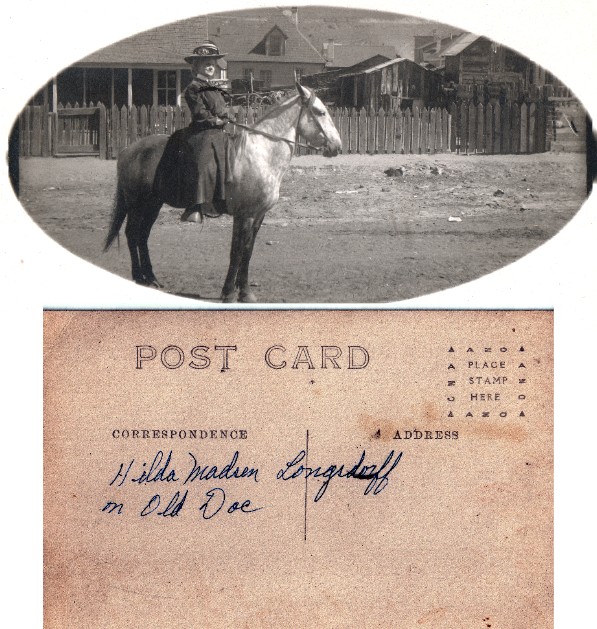 POST CARD
ANO
PLACE
STAMP
HERE
ANO
CORRESPONDENCE
ADDRESS
Hilda Madsen Longsdorff
on Old Doc